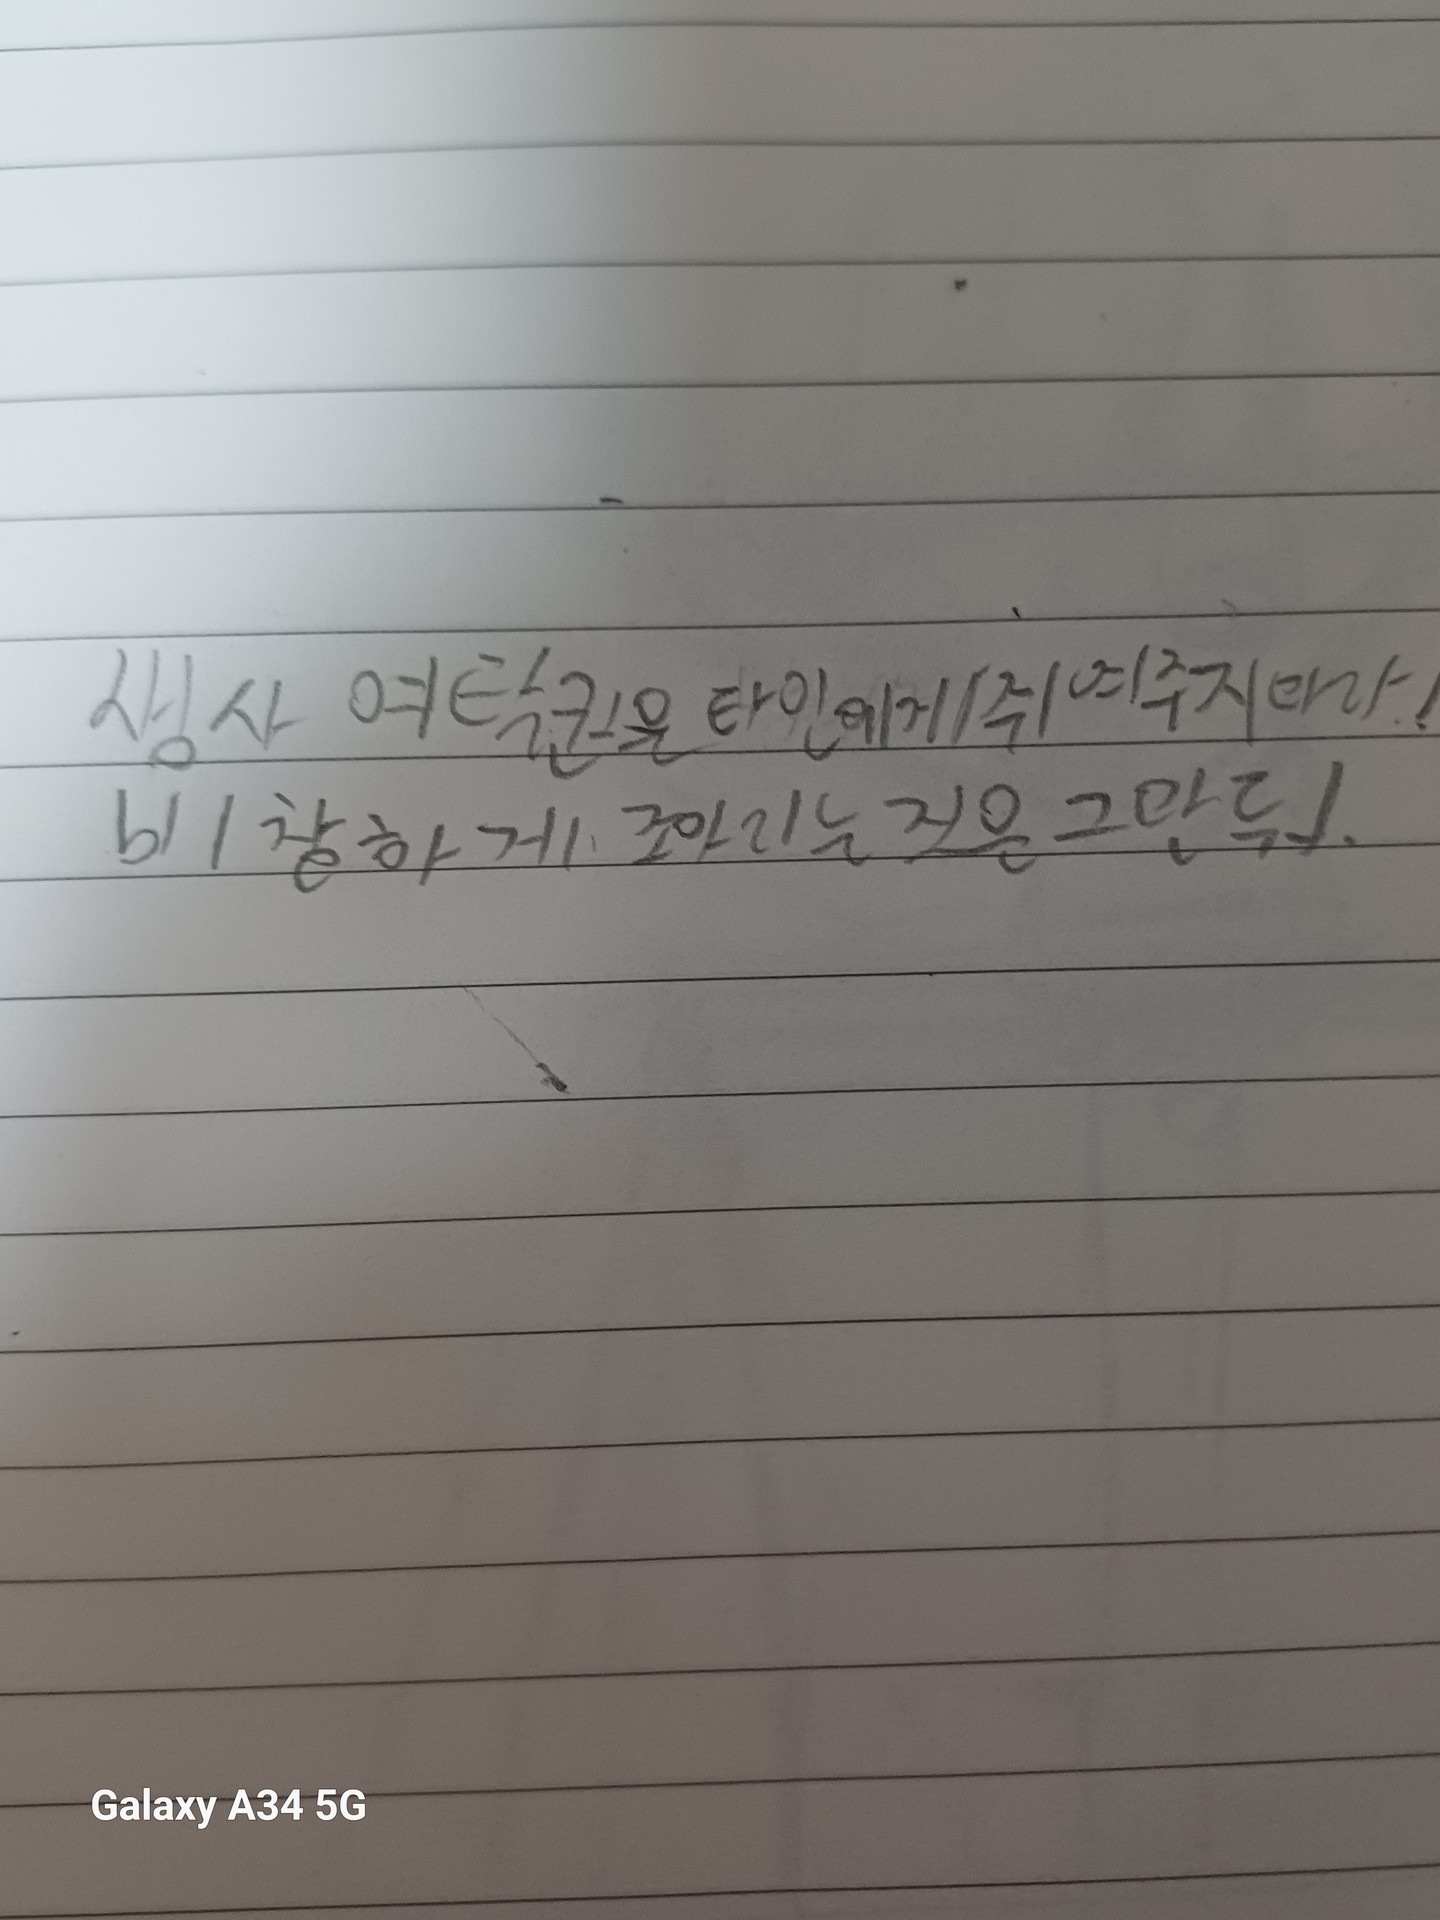 생사 여탈권을 타인에게 쥐여주지마라!
비참하게 조아리는 것은 그만둬!
Galaxy A34 5G